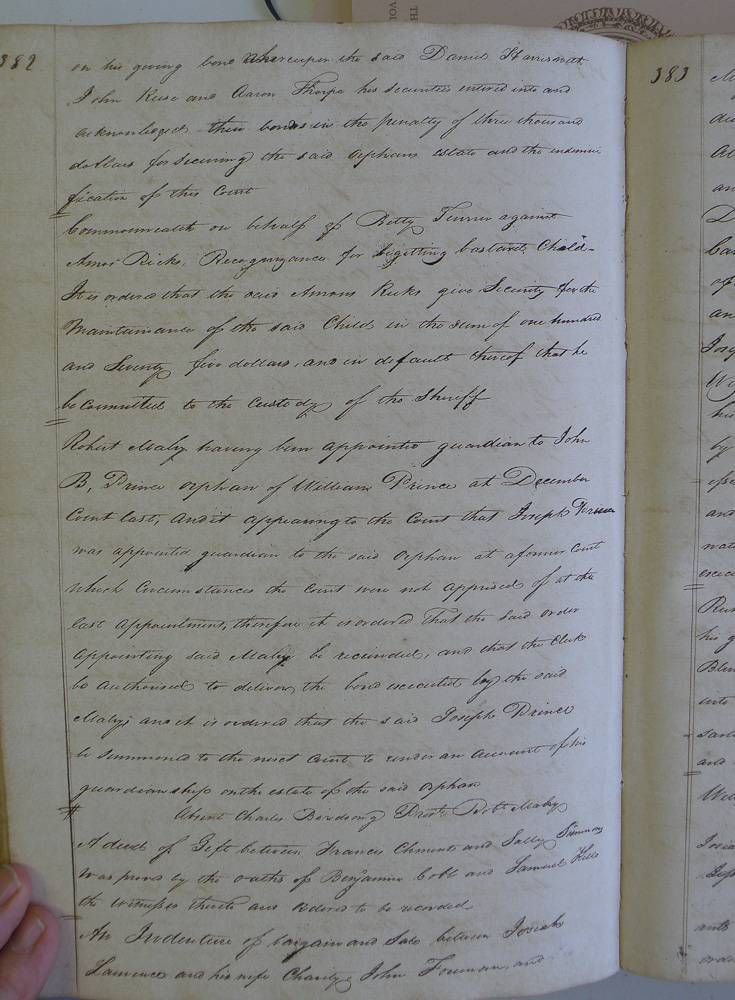 382
on his giving bond whereupon the said Daniel
John Rose and Aaron Thorpe his securities entered into and
acknowledged their bonds in the penalty of three thousand
dollars for securing the said orphans estate and the indemni
fication of this Court
Commonwealth on behalf of Betty Turner against
Amos Ricks, Recognizance for begitting bastard Child-
It is ordered that the said Amos Ricks give Security for the
Maintainance of the said Child in the sum of one hundred
and Seventy five dollars, and in default thereof that he
be committed to the Custody of the Sheriff
Robert Maby having been appointed guardian to John
B, Prince orphan of William Prince at December
Court last, And it appearing to the Court that Joseph Prince
was appointed guardian to the said Orphan at a former Court
which Circumstances the Court were not apprised of at the
last appointment, therefore it is ordered That the said order
appointing said Maby be recinded, and that the Clerk
be authorised to deliver the bond executed by the said
Maby; and it is ordered that the said Joseph Prince
be summoned to the next Court to render an account of his
guardianship on the estate of the said orphan
Absent Charles Birdsong Prest. Robt. Maby
A deed of Gift between Francis Clements and Sally Simmons
was proved by the oaths of Benjamin Cobb and Samuel
the Witnesses thereto and ordered to be recorded-
An Indenture of bargain and Sale between Josiah
Lawrence and his wife Charity, John Foreman, and
383